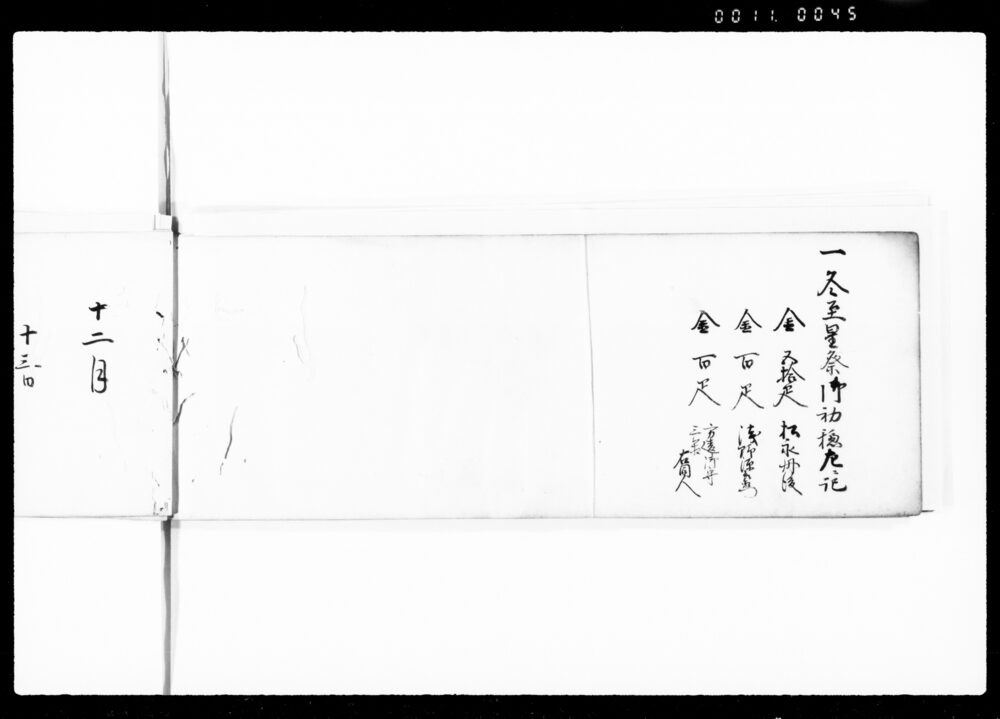 0011 0045
一冬至星祭御初穂左ニ記
金 五拾疋 松永丹後
金 百疋 浅野
金 百疋 方違御守 三 右同人
十二月
十三日